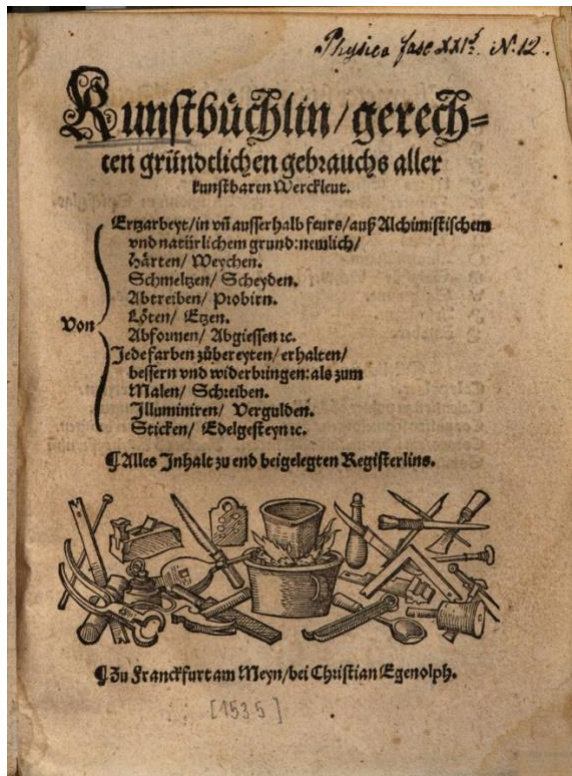 Physica fasc XXI. N. 12.
Kunstbüchlin/gerech=
ten gründtlichen gebrauchs aller
kunstbaren Werckleut.
Ertzarbeyt/in vñ ausserhalb feurs/auß Alchimistischem
vnd natürlichem grund:nemlich/
Härten/ Weychen.
Schmeltzen/ Scheyden.
Abtreiben/ Probirn.
Löten/ Etzen.
Von
Abformen/ Abgiessen ꝛc.
Jede farben zůbereyten/erhalten/
bessern vnd widerbringen:als zum
Malen/ Schreiben.
Illuminiren/ Vergulden.
Sticken/ Edelgesteyn ꝛc.
¶Alles Inhalt zu end beigelegten Registerlins.
¶Zu Franckfurt am Meyn/bei Christian Egenolph.
[1535]